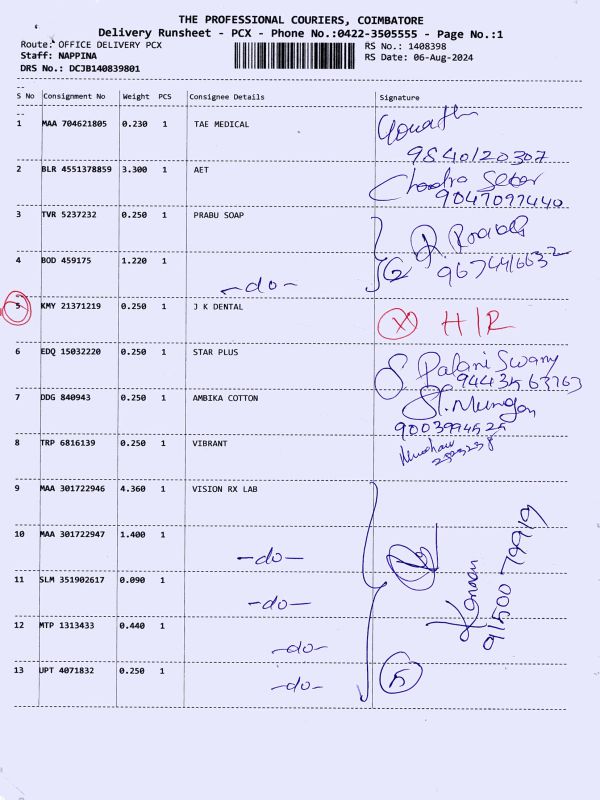 THE PROFESSIONAL COURIERS, COIMBATORE
Delivery Runsheet - PCX - Phone No.:0422-3505555 - Page No.:1
Route: OFFICE DELIVERY PCX RS No.: 1408398
Staff: NAPPINA RS Date: 06-Aug-2024
DRS No.: DCJB140839801
S No Consignment No Weight PCS Consignee Details Signature
1 MAA 704621805 0.230 1 TAE MEDICAL
9840120307
2 BLR 4551378859 3.300 1 AET Chandra Sekar
9047097440
3 TVR 5237232 0.250 1 PRABU SOAP
4 BOD 459175 1.220 1 -do- 2
5 KMY 21371219 0.250 1 J K DENTAL X H/R
6 EDQ 15032220 0.250 1 STAR PLUS S. Palani Swamy
7 DDG 840943 0.250 1 AMBIKA COTTON
8 TRP 6816139 0.250 1 VIBRANT
9 MAA 301722946 4.360 1 VISION RX LAB
10 MAA 301722947 1.400 1 -do-
11 SLM 351902617 0.090 1 -do-
12 MTP 1313433 0.440 1 -do-
13 UPT 4071832 0.250 1 -do- 5
Kannan
91500 79919